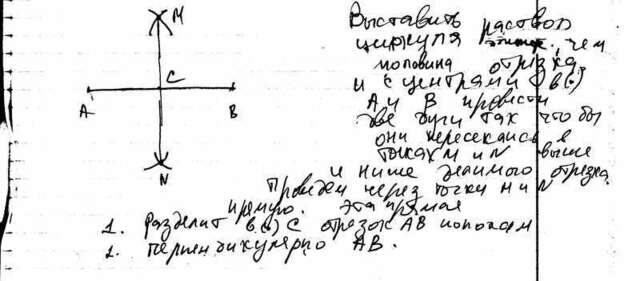 M
C
A
B
N
Выставить раствор
циркуля чем
половина отрезка
и с центрами в(·)
А и В провести
две дуги так что бы
они пересекались в
точках М и N выше
и ниже делимого отрезка.
Проведем через точки М и N
прямую. Эта прямая
1. Разделит в(·) С отрезок АВ пополам
2. Перпендикулярно АВ.